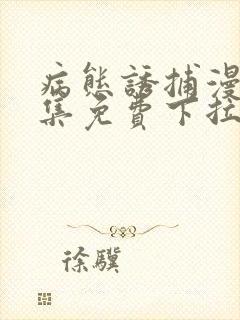 病態誘捕漫
集免費下拉
徐驥